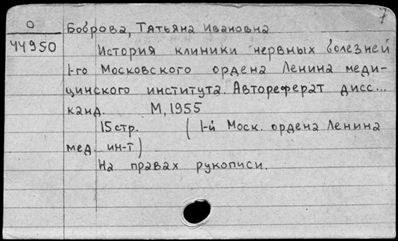 7
О Боброва, Татьяна Ивановна
44950 История клиники нервных болезней
1-го Московского ордена Ленина меди-
цинского института. Автореферат дисс...
канд. М, 1955
15 стр. (1-й Моск. ордена Ленина
мед. ин-т)
На правах рукописи.